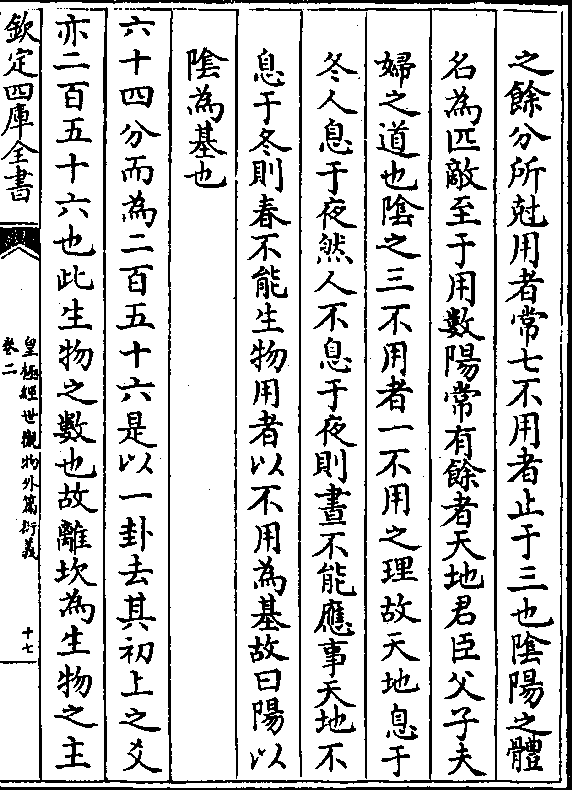 之餘分所尅用者常七不用者止于三也陰陽之體
名為匹敵至于用數陽常有餘者天地君臣父子夫
婦之道也陰之三不用者一不用之理故天地息于
冬人息于夜然人不息于夜則晝不能應事天地不
息于冬則春不能生物用者以不用為基故曰陽以
陰為基也
六十四分而為二百五十六是以一卦去其初上之爻
亦二百五十六也此生物之數也故離坎為生物之主
欽定四庫全書
皇極經世觀物外篇衍義
卷二
十七